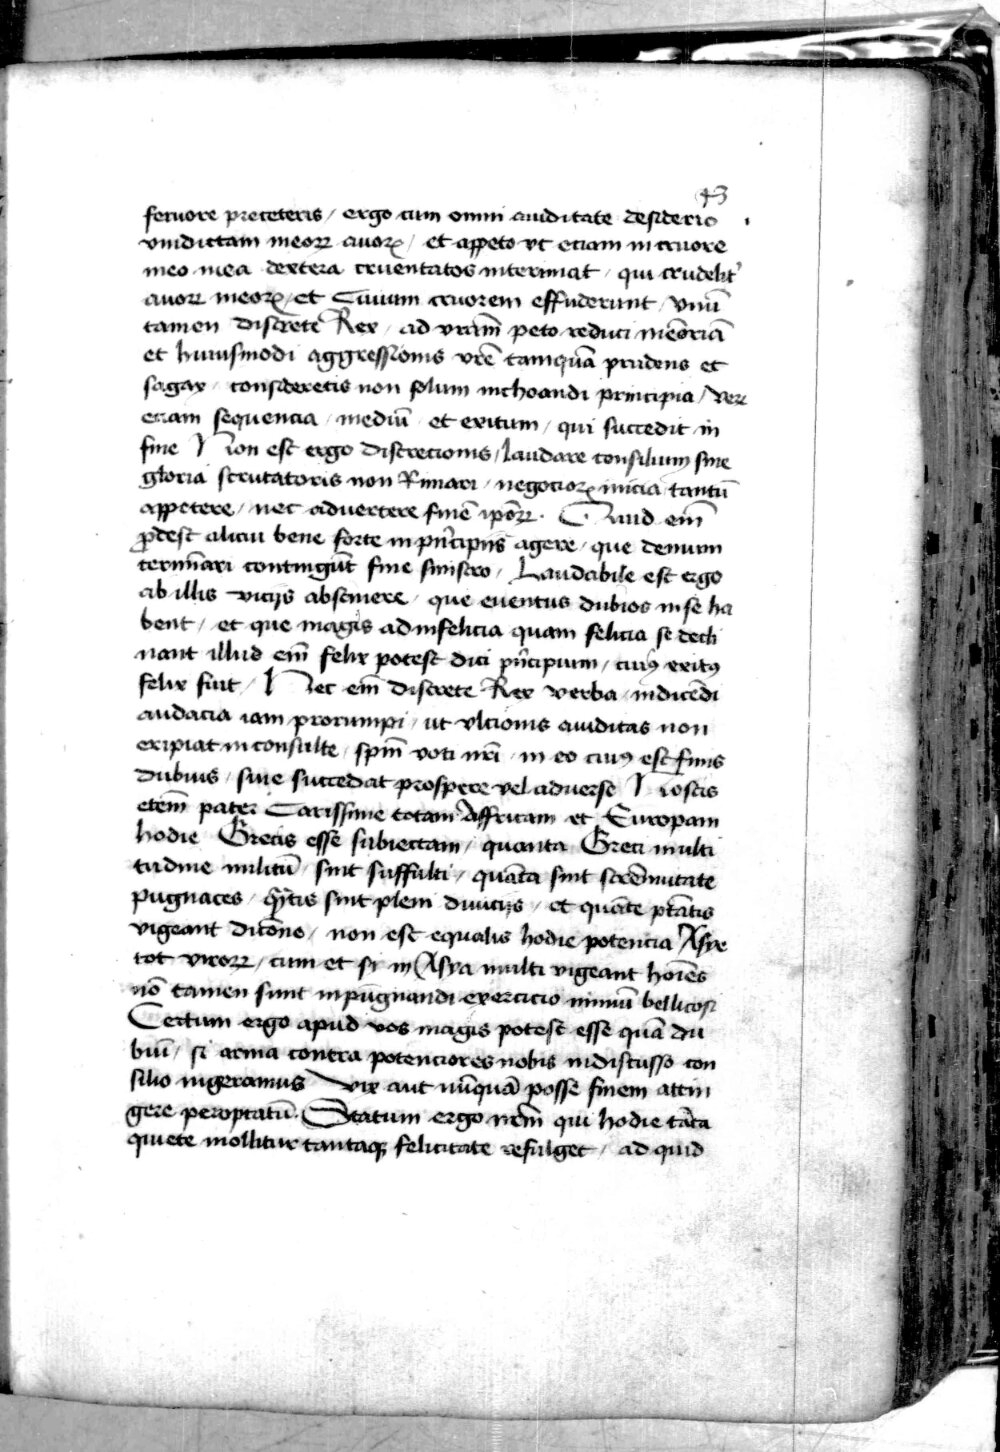 43
feruore preceteris / ergo cum omni auiditate desiderio
vindictam meorꝝ auorꝝ / et appeto vt etiam in cruore
meo mea dextera cruentatos interimat / qui crudelit᷑
auorꝝ meorꝝ / et Ciuium cruorem effuderunt / vnū
tamen discrete Rex / ad vrām peto reduci mēoriā
et huiusmodi aggressionis vrē tamquā prudens et
sagax / consideretis non solum inchoandi principia / verꝝ
etiam sequencia / mediū et exitum / qui succedit in
fine Non est ergo discrecionis / laudare consilium sine
gloria scrutatoris non Rimari / negociorꝝ inicia tantū
appetere / nec aduertere finē ipōrꝝ. Quid em̄
ꝓdest alicui bene forte in prīcipijs agere / que demum
termīari contingūt fine sinistro / Laudabile est ergo
ab illis vicijs abstinere / que euentus dubios in se ha
bent / et que magis ad infelicia quam felicia se decli
nant illud em̄ felix potest dici prīcipium / cuiꝰ exitꝰ
felix fuit / Hec em̄ discrete Rex verba / in dicēdi
audacia iam prorumpi / ut vlcionis auiditas non
eripiat inconsulte / spm̄ voti nr̄i / in eo cuiꝰ est finis
dubius / siue succedat prospere vel aduerse Noscis
etem̄ pater Carissime totam Affricam et Europam
hodie Grecis esse subiectam / quanta Greci multi
tudine militū / sint suffulti / quāta sint strēnuitate
pugnaces / q̄ntis sint pleni diuicijs / et quāte ptātis
vigeant dicōne / non est equalis hodie potencia Asye
tot virorꝝ / cum et si in Asya multi vigeant hoīes
nō tamen sunt in pugnandi exercicio nimiū bellicosi
Certum ergo apud vos magis potest esse quā du
biū / si arma contra potenciores nobis indiscusso con
silio ingeramus Vix aut nūquā posse finem attin
gere peroptatū. Statum ergo nrm̄ qui hodie tāta
quiete mollitur tantaqꝫ felicitate refulget / ad quid